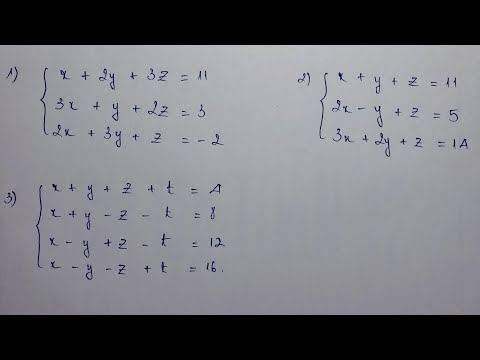 1) x + 2y + 3z = 11
3x + y + 2z = 3
2x + 3y + z = -2
2) x + y + z = 11
2x - y + z = 5
3x + 2y + z = 14
3) x + y + z + t = 4
x + y - z - t = 8
x - y + z - t = 12
x - y - z + t = 16.